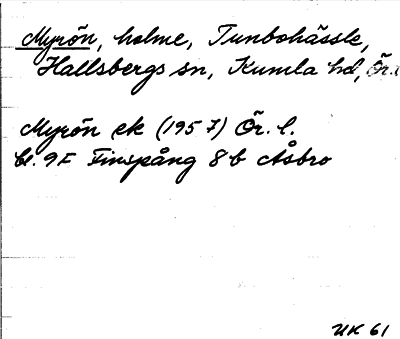 Myrön, holme, Tunbohässle,
Hallsbergs sn, Kumla hd, Ör.
Myrön ek (1957) Ör. l.
bl. 9F Finspång 8b Åsbro
UK 61